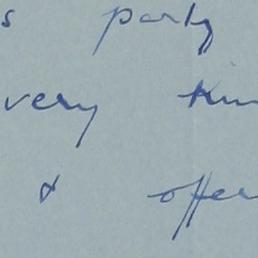 s party
very kin
& offer